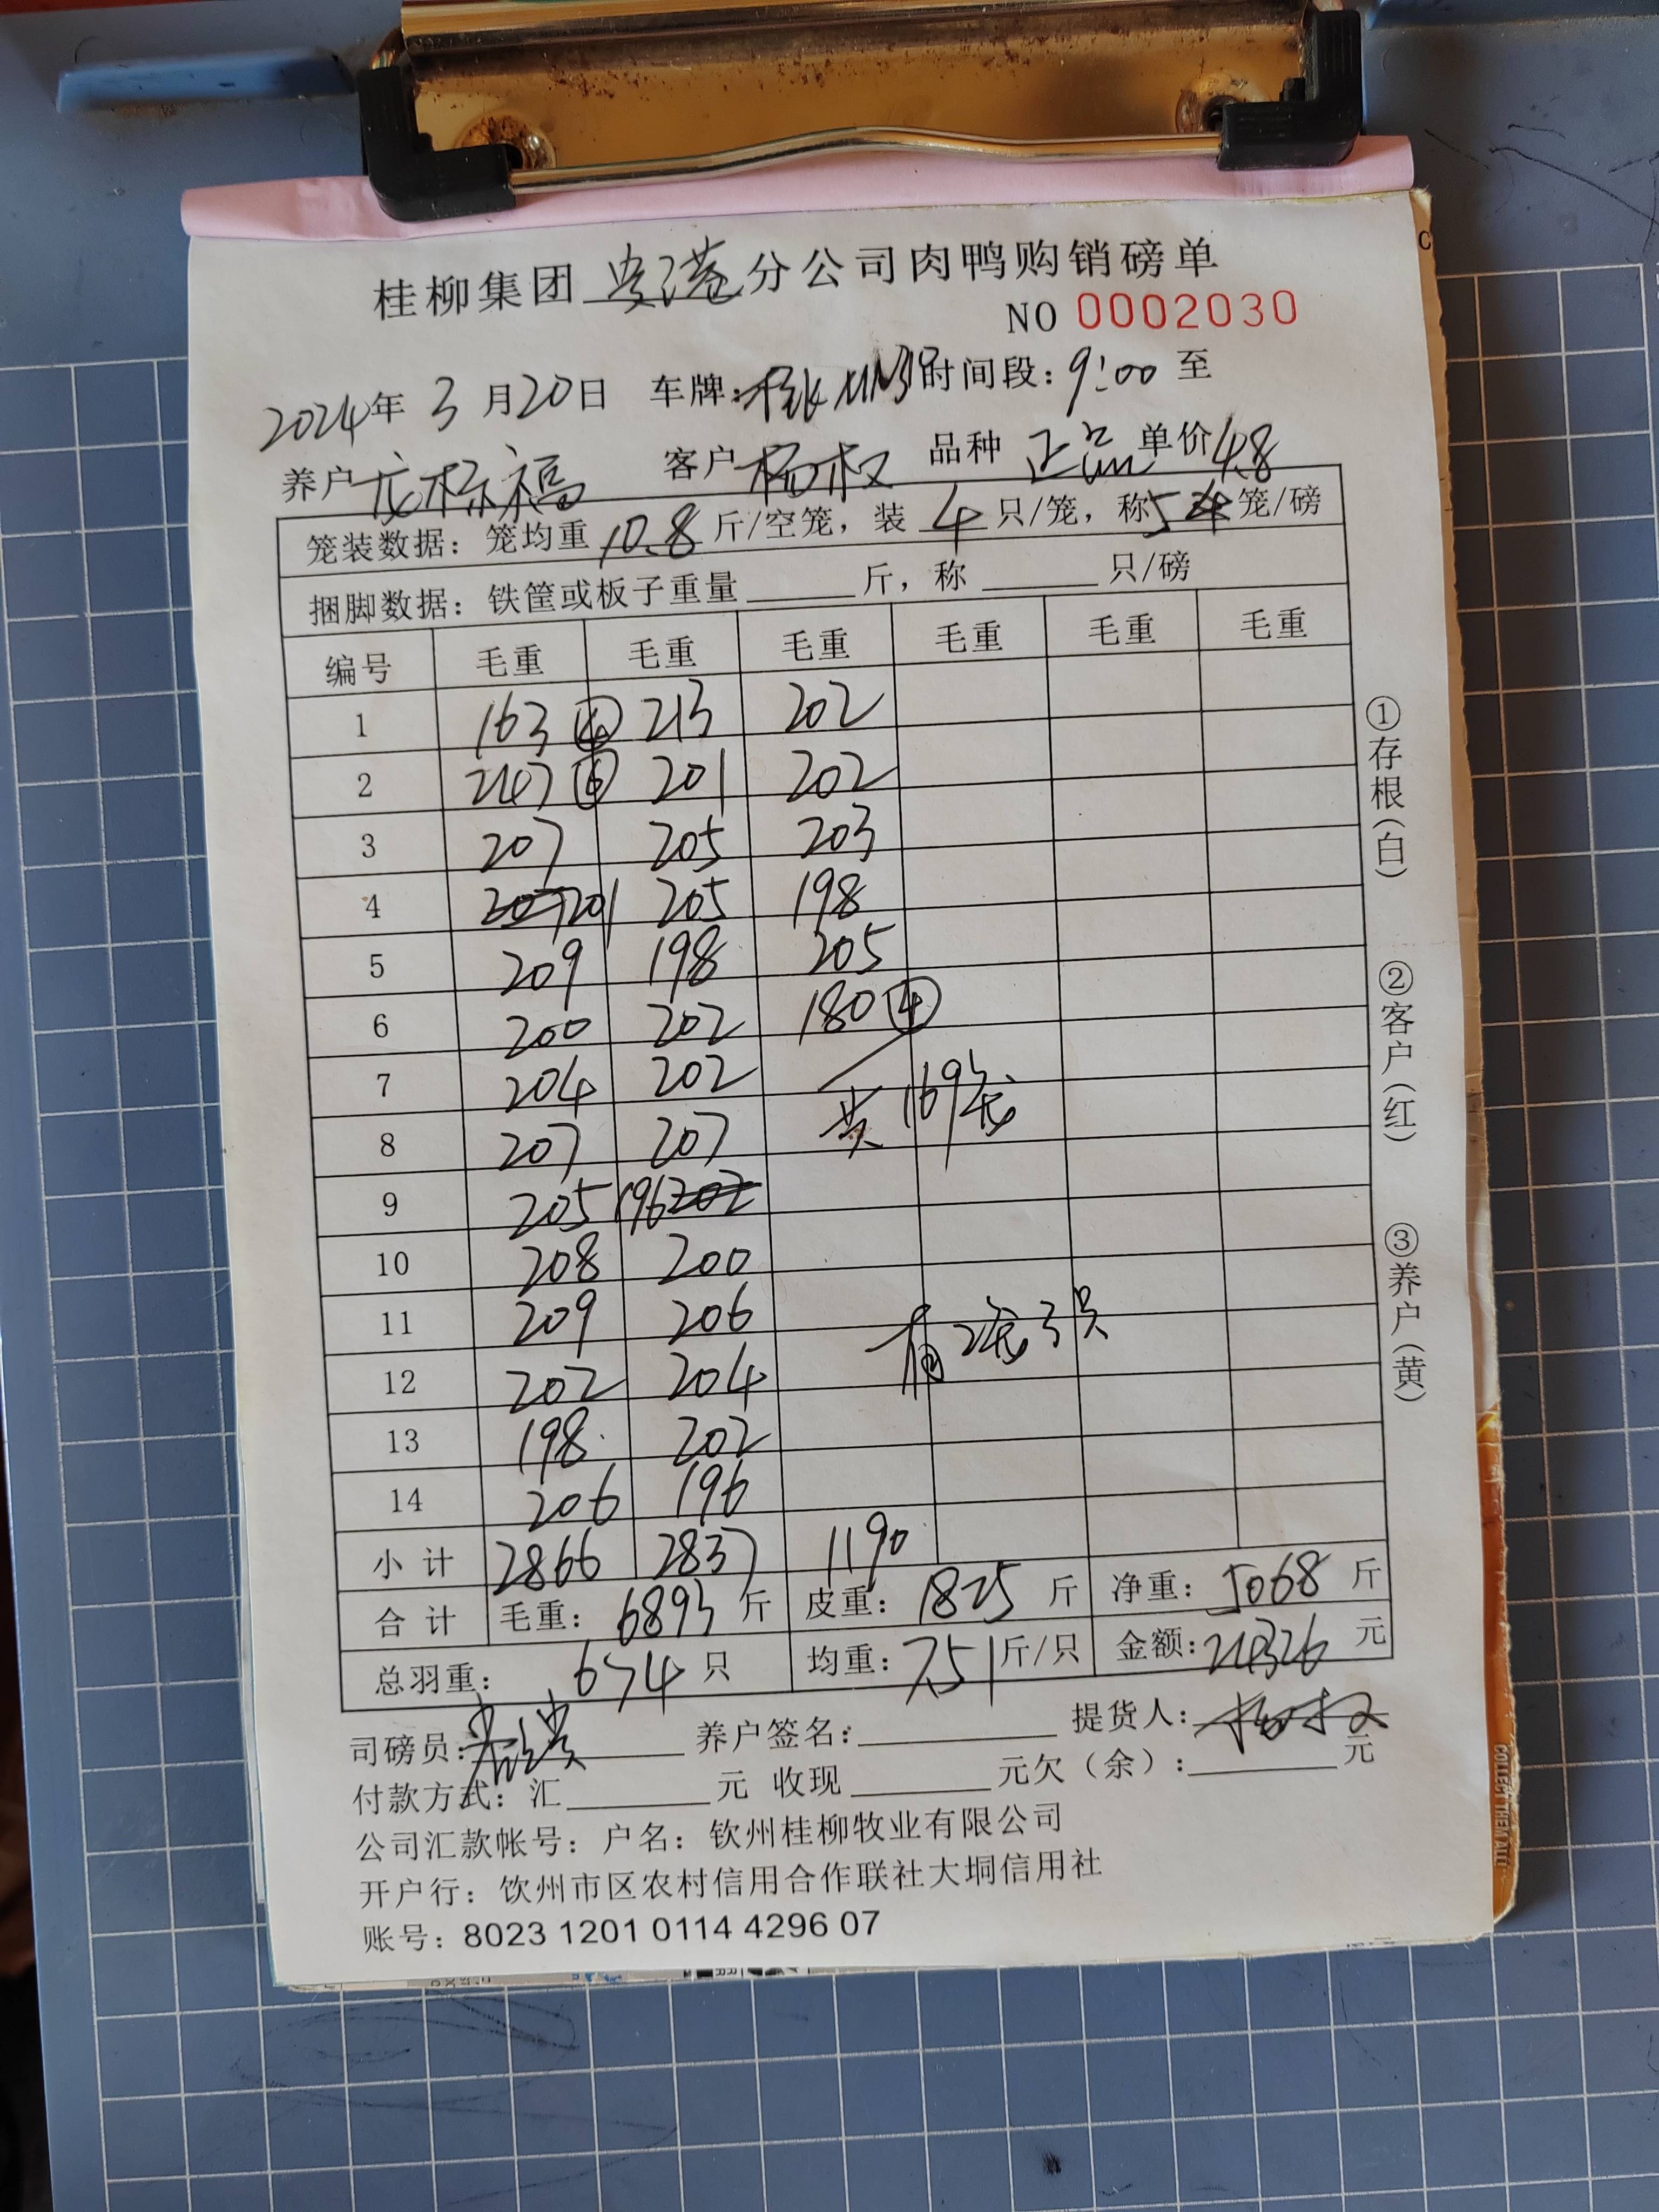 桂柳集团 贵港 分公司肉鸭购销磅单
NO 0002030
2024年 3 月20日 车牌: 时间段: 9:00 至
养户 龙标福 客户 杨权 品种 正品 单价 4.8
笼装数据: 笼均重 10.8 斤/空笼, 装 4 只/笼, 称 5 笼/磅
捆脚数据: 铁筐或板子重量 斤, 称 只/磅
编号 毛重 毛重 毛重 毛重 毛重 毛重
1 163 ④ 213 202
2 247 ⑥ 201 202
3 207 205 203
4 201 205 198
5 209 198 205
6 200 202 180 ④
7 204 202
共169笼
8 207 207
9 205 196
10 208 200
11 209 206
有2笼3只
12 202 204
13 198 202
14 206 196
小计 2866 2837 1190
合计 毛重: 6893 斤 皮重: 1825 斤 净重: 5068 斤
总羽重: 674 只 均重: 7.51 斤/只 金额: 24326 元
司磅员: 养户签名: 提货人: 杨权
付款方式: 汇 元 收现 元欠(余): 元
公司汇款帐号: 户名: 钦州桂柳牧业有限公司
开户行: 饮州市区农村信用合作联社大垌信用社
账号: 8023 1201 0114 4296 07
①存根(白)
②客户(红)
③养户(黄)
COLLECT THEM ALL!